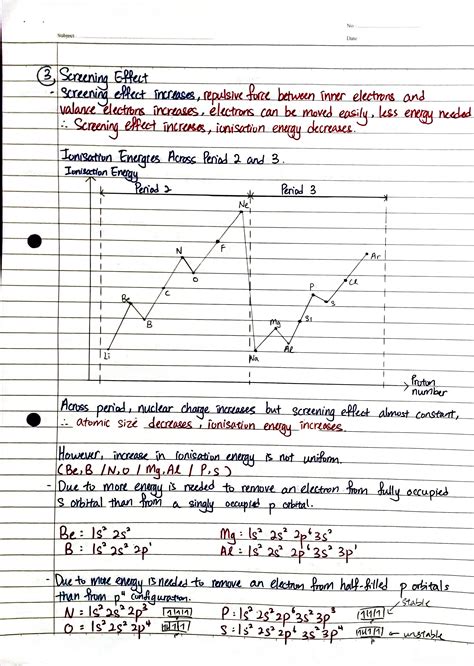 No.
Subject
Date
③ Screening Effect
- Screening effect increases, repulsive force between inner electrons and
valance electrons increases, electrons can be moved easily, less energy needed
∴ Screening effect increases, ionisation energy decreases.
Ionisation Energies Across Period 2 and 3.
Ionisation Energy
Period 2 Period 3
Ne
N F Ar
O P Cl
Be C S
B Mg Si
Li Na Al
Proton
number
Across period, nuclear charge increases but screening effect almost constant,
∴ atomic size decreases, ionisation energy increases.
However, increase in ionisation energy is not uniform.
(Be,B / N,O / Mg,Al / P,S)
- Due to more energy is needed to remove an electron from fully occupied
S orbital than from a singly occupied p orbital.
Be : 1s² 2s² Mg : 1s² 2s² 2p⁶ 3s²
B : 1s² 2s² 2p¹ Al : 1s² 2s² 2p⁶ 3s² 3p¹
- Due to more energy is needed to remove an electron from half-filled p orbitals
than from p⁴ configuration.
N = 1s² 2s² 2p³ P : 1s² 2s² 2p⁶ 3s² 3p³ stable
O = 1s² 2s² 2p⁴ S : 1s² 2s² 2p⁶ 3s² 3p⁴ unstable